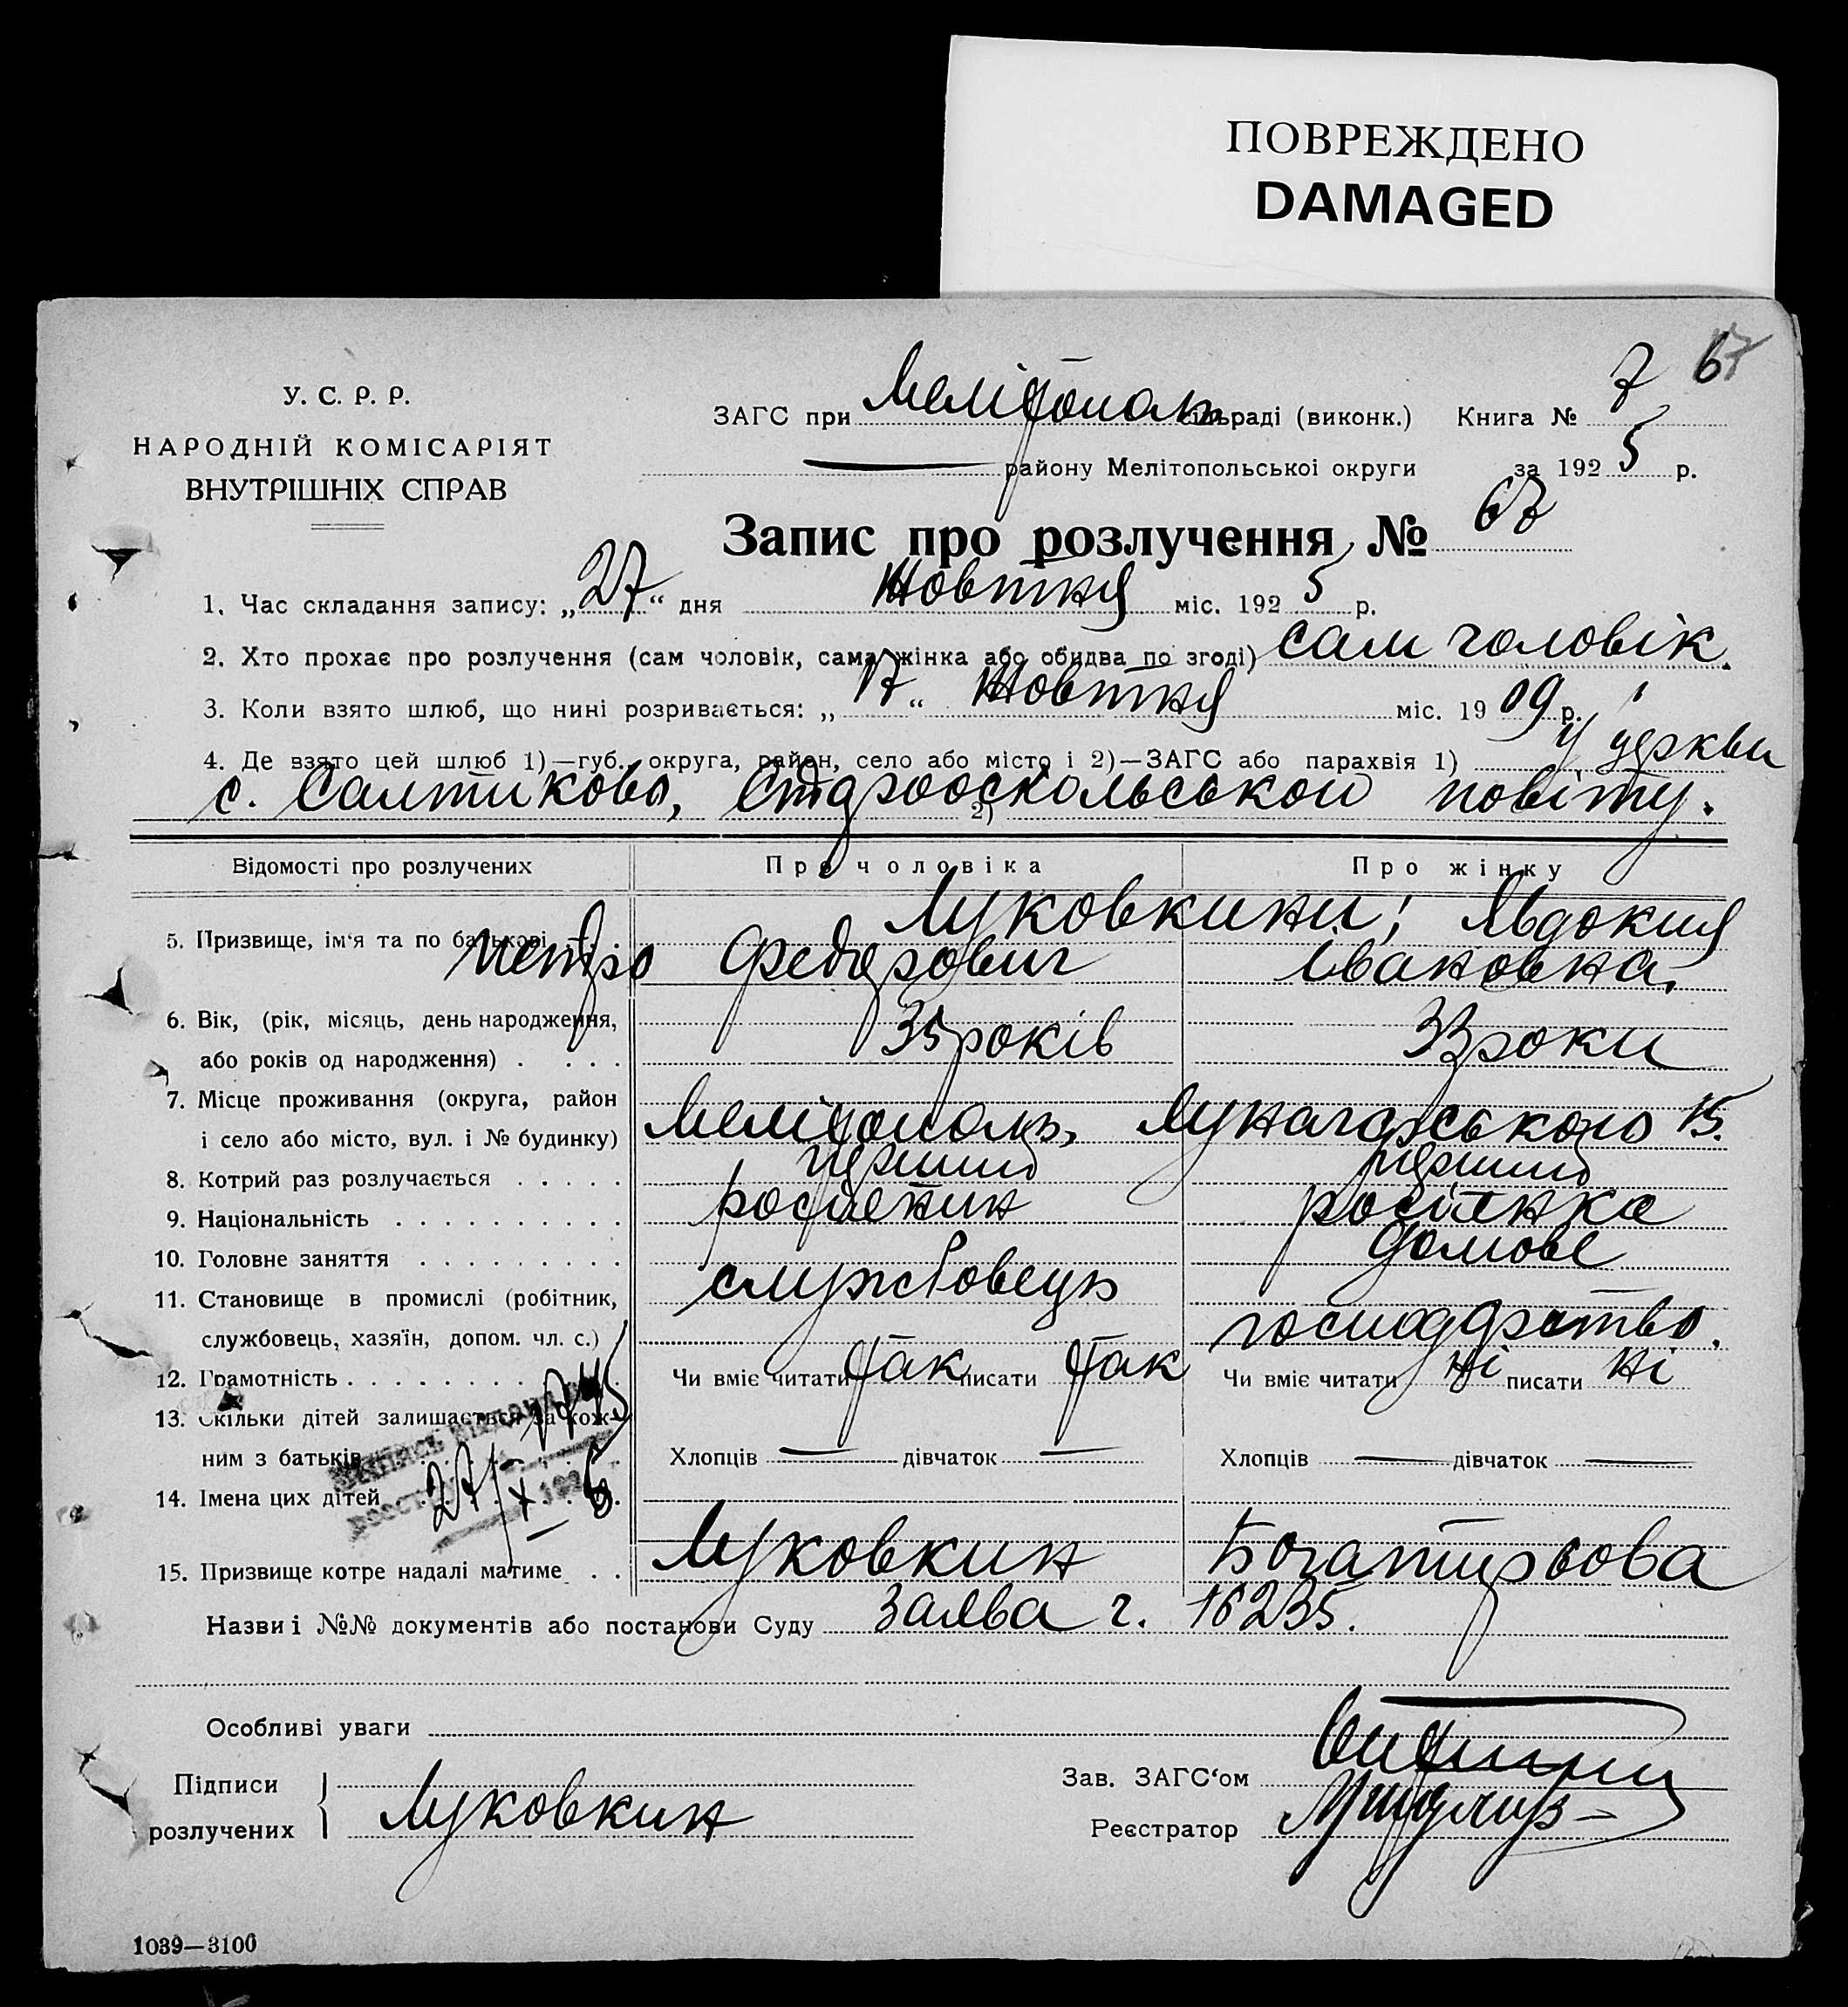 ПОВРЕЖДЕНО
DAMAGED
7 67
У. С. Р. Р.
НАРОДНІЙ КОМІСАРІЯТ
ВНУТРІШНІХ СПРАВ
ЗАГС при Мелітопол сільраді (виконк.) Книга № 7
— району Мелітопольської округи за 1925 р.
Запис про розлучення № 67
1. Час складання запису: „27“ дня Жовтня міс. 1925 р.
2. Хто прохає про розлучення (сам чоловік, сама жінка або обидва по згоді) сам чоловік.
3. Коли взято шлюб, що нині розривається: „17“ Жовтня міс. 1909 р.
4. Де взято цей шлюб 1)—губ., округа, район, село або місто і 2)—ЗАГС або парахвія 1) у церкви
с. Салтиково, Старооскольськои повіту. 2)
Відомості про розлучених Про чоловіка Про жінку
5. Призвище, ім‘я та по батькові Луковкини; Явдокия
Петро Федорович Івановна.
6. Вік, (рік, місяць, день народження,
або років од народження) 35 років 33 роки
7. Місце проживання (округа, район
і село або місто, вул. і № будинку) Мелітополь, Луначарського 15.
8. Котрий раз розлучається перший перший
9. Національність росіянин росіянка
10. Головне заняття домове
11. Становище в промислі (робітник, службовець
службовець, хазяїн, допом. чл. с.) господарство.
12. Грамотність Чи вміє читати так писати так Чи вміє читати ні писати ні
13. Скільки дітей залишається за кож-
ним з батьків Хлопців — дівчаток — Хлопців — дівчаток —
14. Імена цих дітей 27/X
15. Призвище котре надалі матиме Луковкин Богатирьова
Назви і №№ документів або постанови Суду заява ч. 16235.
Особливі уваги
Підписи
розлучених Луковкин
Зав. ЗАГС‘ом
Реєстратор
1039—3100